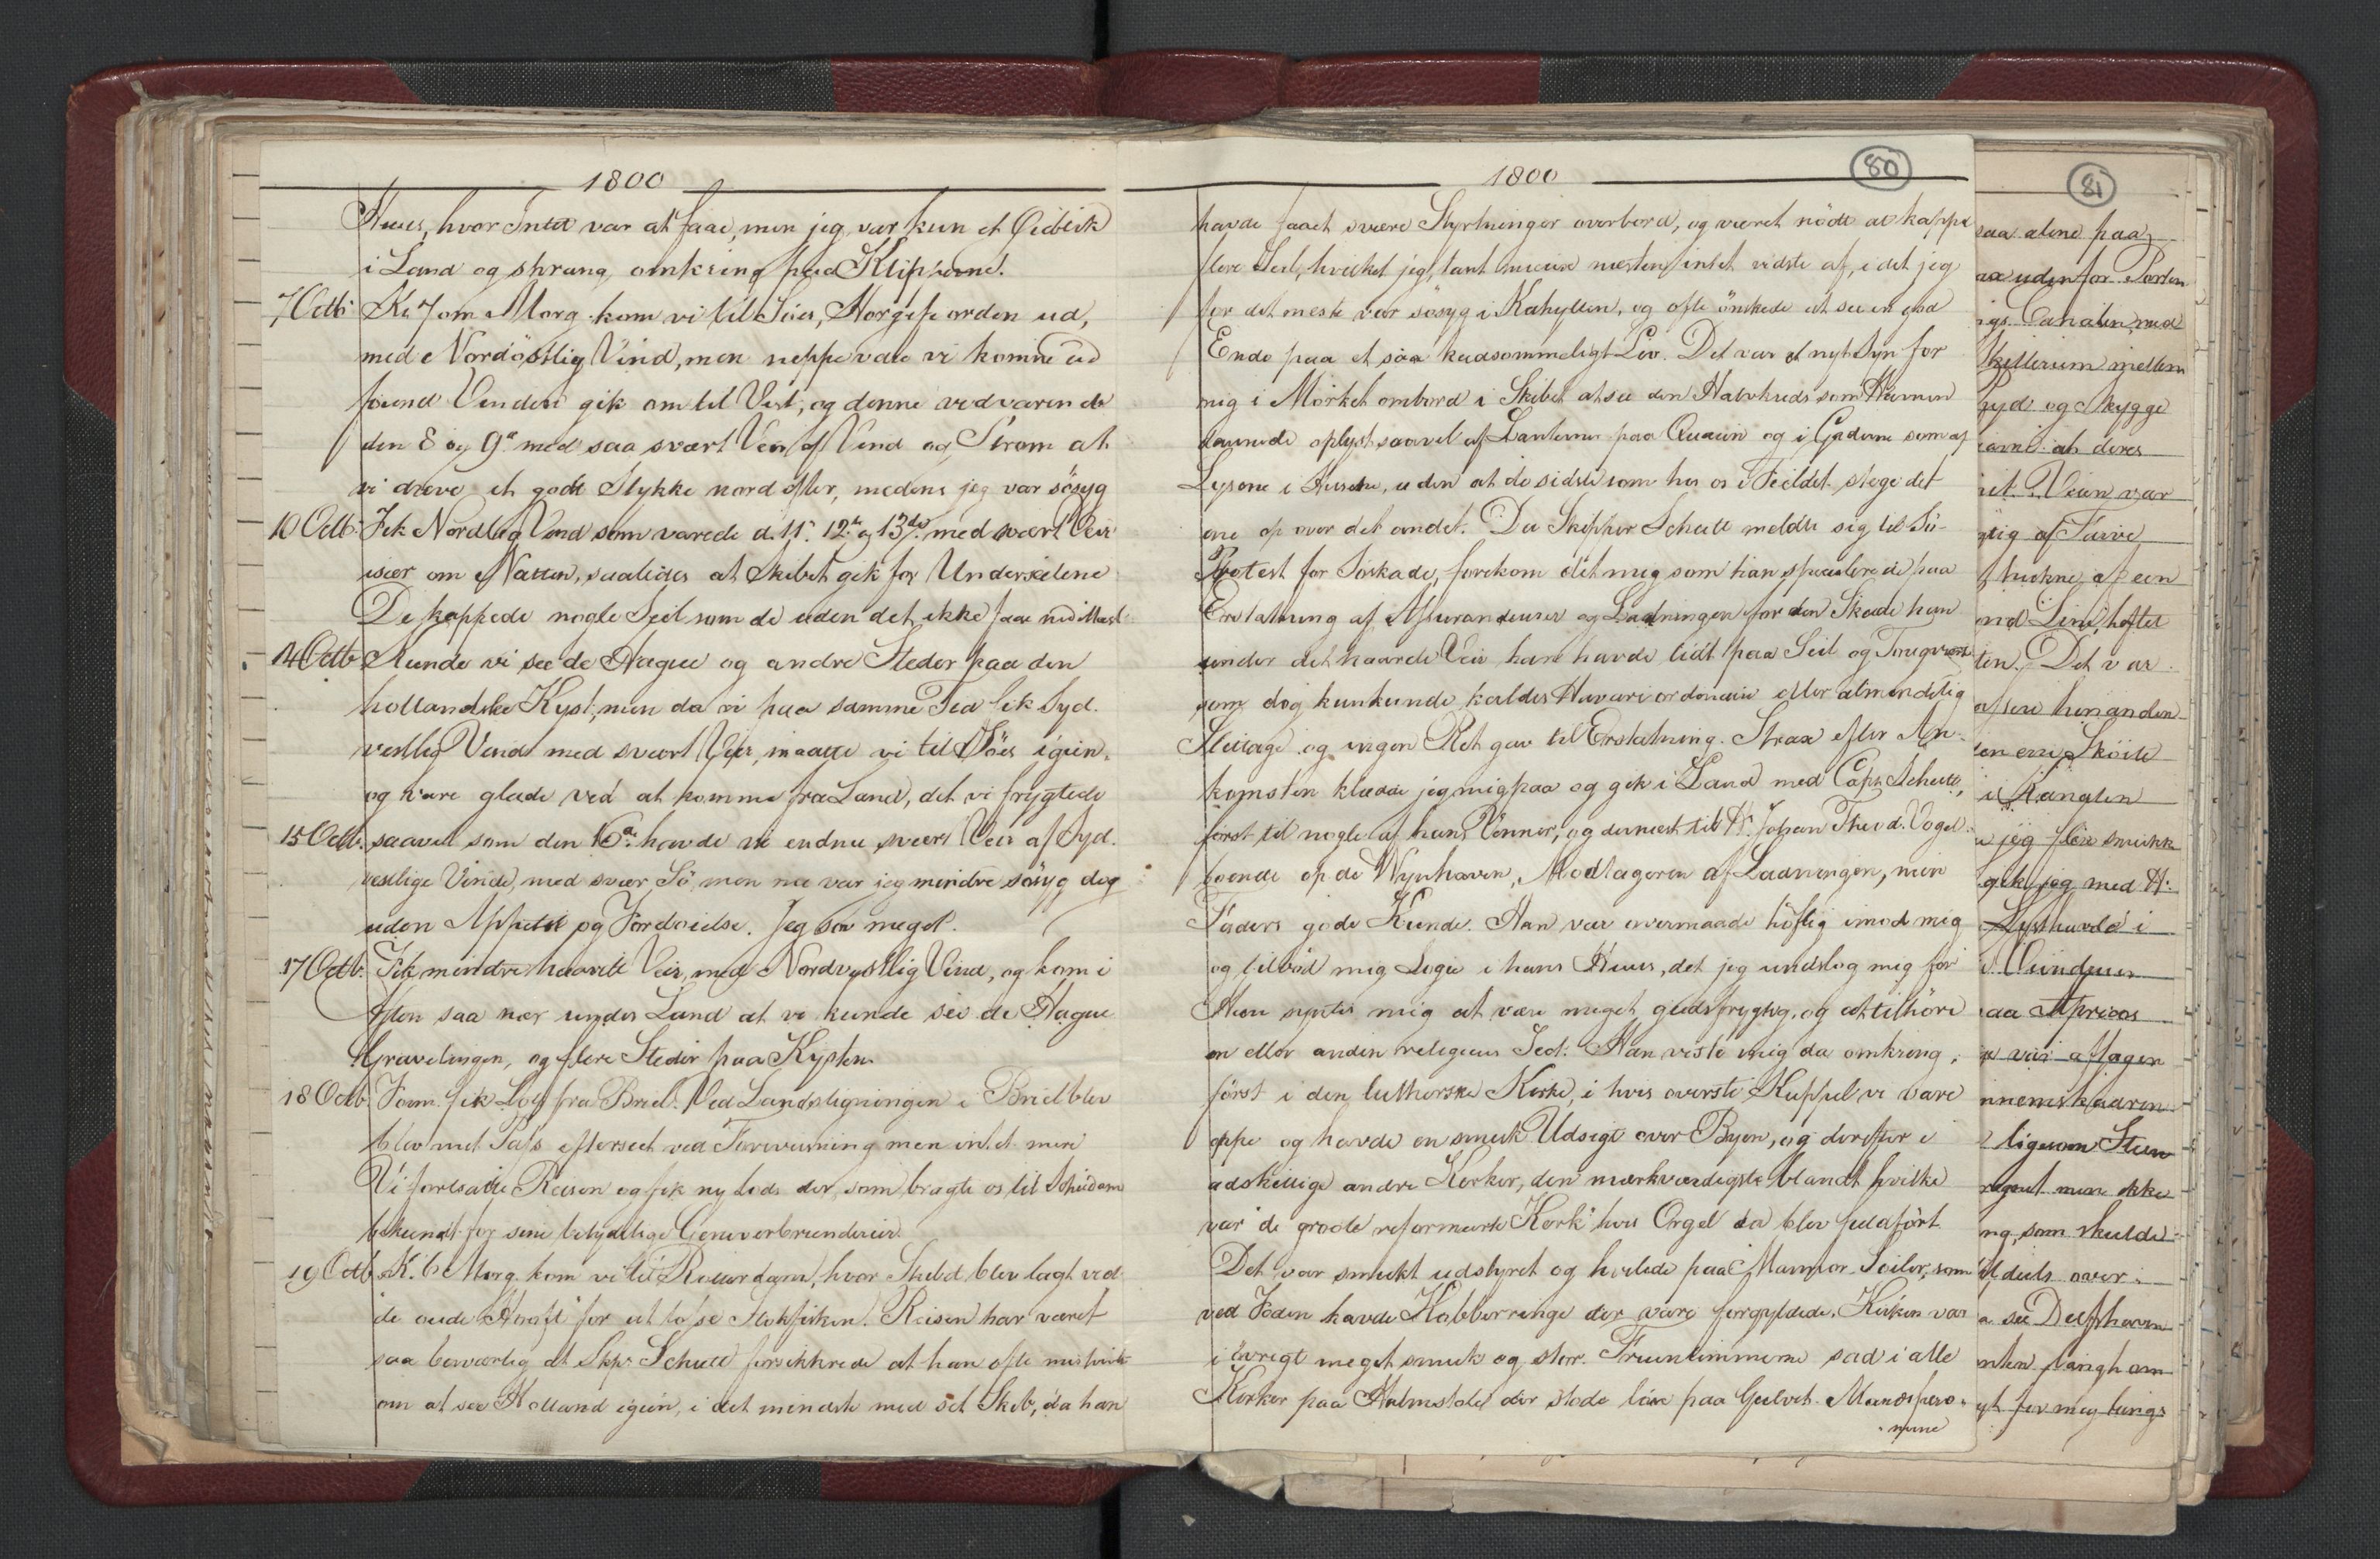 1800
Huus, hvor Intet var at faae, men jeg var kun et Öieblik
i Land og sprang omkring paa Klipperne.
7 Octb. Kl 7 om Morg. kom vi til Söes, Korsfiorden ud,
med Nordöstlig Vind, men neppe vare vi komne ud
förend Vinden gik om til Vest, og denne vedvarende
den 8 og 9de med saa svært Veir af Vind og Ström at
vi dreve et godt Stykke nord efter, medens jeg var sösyg
10 Octb. Fik Nordlig Vind som varede d. 11. 12te og 13de med svært Veir
især om Natten, saaledes at Skibet gik for Underseilene
De kappede nogle Seil som de uden det ikke faae ned
14 Octb. Kunde vi see de Hague og andre Steder paa den
hollandske Kyst, men da vi paa samme Tid fik Syd-
vestlig Vind med svært Veir, maatte vi til Söes igien,
og vare glade ved at komme fra Land, det vi frygtede
15 Octb. saavel som den 16de havde vi endnu svært Veir af Syd-
vestlige Vinde, med svær Sö, men nu var jeg mindre sösyg dog
uden Appetit og Fordöielse. Jeg sov meget.
17 Octb. Fik mindre haardt Veir, med Nordvestlig Vind, og kom i
Aften saa nær under Land at vi kunde see de Hague
Gravelingen, og flere Steder paa Kysten.
18 Octb. Form. fik Lods fra Briel. Ved Landstigningen i Briel blev
blev mit Pass efterseet ved Forevisning men intet mere
Vi fortsatte Reisen og fik ny Lods der, som bragte os til Schiedam
bekiendt for sine betydelige Geneverbrænderier
19 Octb. Kl. 6 Morg. kom vi til Rotterdam, hvor Skibet blev lagt ved
de oude Hooft for at losse Stokfisken. Reisen har været
saa besværlig at Skpr Schutt forsikkrede at han ofte mistvivlede
om at see Holland igien, i det mindste med sit Skib, da han
1800
80
havde faaet svære Styrtninger overbord, og været nödt at kappe
flere Seil, hvilket jeg, næsten intet vidste af, i det jeg
for det meste var sösyg i Kahytten, og ofte önskede at see en god
Ende paa et saa kiedsommeligt Liv. Det var et nyt Syn for
mig i Mörket ombord i Skibet at see den Halvkreds som Havnen
dannede oplyst saavel af Lanterner paa Quaien og i Gaderne som af
Lysene i Husene, uden at de sidste som hos os i Fieldet stege det
ene op over det andet. Da Skipper Schutt meldte sig til Sö-
Protest for Söskade, forekom det mig som han speculerede paa
Erstatning af Assurandeurer og Ladningen for den Skade han
under det haarde Veir han havde lidt paa Seil og Tougværk
som dog kun kunde kaldes Havari ordinaire eller almindelig
Slitage og ingen Ret gav til Erstatning. Strax efter An-
komsten klædte jeg mig paa og gik i Land med Capt. Schutt,
först til nogle af hans Venner, og dernæst til Hr. Johan Theod. Vogel
boende op de Wynhaven, Modtageren af Ladningen, min
Faders gode Kunde. Han var overmaade höflig imod mig
og tilböd mig Logie i hans Huus, det jeg undslog mig for
Han syntes mig at være meget gudsfrygtig, og at tilhöre
en eller anden religieus Sect. Han viste mig da omkring,
först i den lutherske Kirke, i hvis överste Kuppel vi vare
oppe og havde en smuk Udsigt over Byen, og derefter i
adskillige andre Kirker, den mærkværdigste blandt hvilke
var "de groote reformeerte Kerk" hvis Orgel da blev fuldfört
Det var smukt udstyret og hvilede paa Marmor-Söiler, som
ved Foden havde Kobberringe der vare forgyldede. Kirken var
i övrigt meget smuk og stor. Fruentimmerne sad i alle
Kirker paa Halmstole der stode löse paa Gulvet. Mandsperso-
nerne
81
saa alene paa
uden for Porten
Canalen, med
mellem
og Skygge
at deres
Veien var
af Farve
af een
Det var
hinanden
Sköite
i Kanalen
jeg flere smukke
gik jeg med Hr.
Lysthuuse i
paa Apricos
var aftagen
ligesom Steen
men ikke
som skulde
deels over
see Delfshaven
for mig